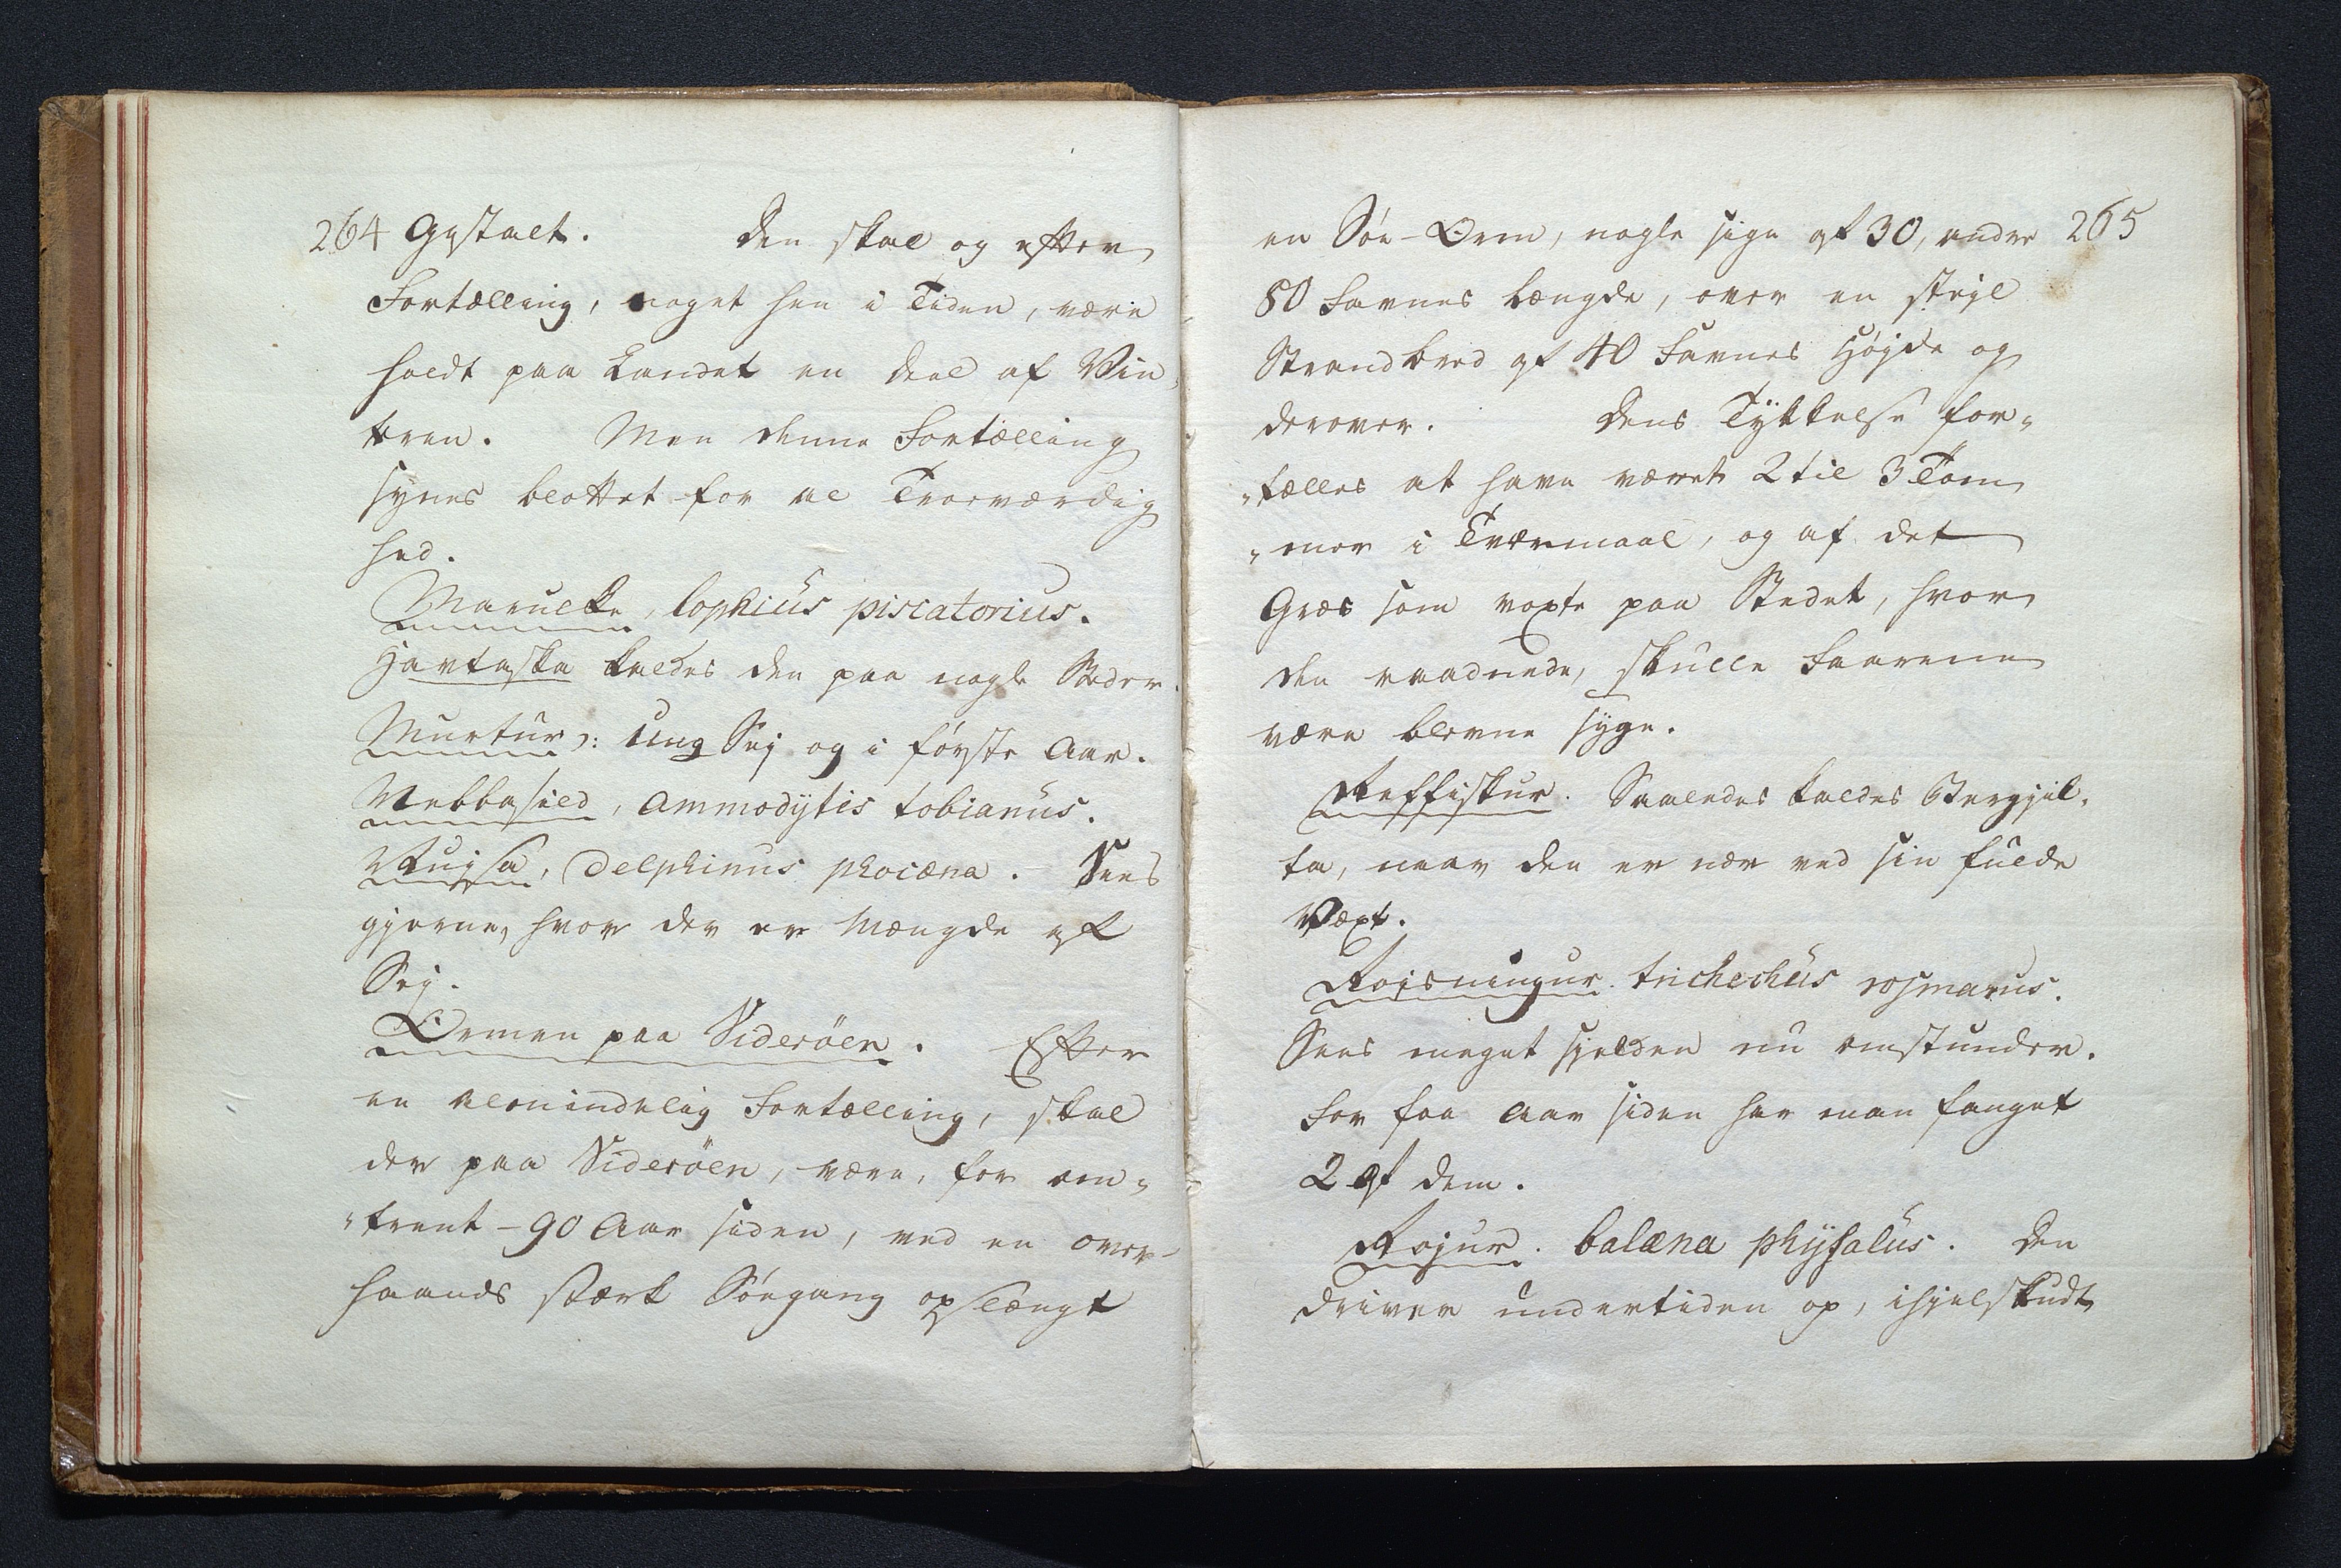 264 Gystalt. Den skal og efter
Fortælling, noget hen i Tiden, være
holdt paa Landet en deel af Vin
tren. Men denne Fortælling
synes blottet for al Troeværdig
hed.
Marulke, lophius piscatorius.
Havtaska kaldes den paa nogle Steder.
Murtur ɔ: Ung Sej og i første Aar.
Nebbasild, ammodytis tobianus.
Nujsa, Delphinus phocæna. Sees
gjerne, hvor der er Mængde af
Sej.
Ormen paa Viderøen. Efter
en almindelig Fortælling, skal
der paa Viderøen, være, for om„
„trent - 90 Aar siden, ved en over-
haands stærk Søegang opslængt
265
en Søe-Orm, nogle sige af 30, andre
80 Favnes Længde, over en stejl
Strandbred af 40 Favnes Højde og
derover. Dens Tykkelse for„
„tælles at have været 2 til 3 Tom
„mer i Tværmaal, og af det
Græs som voxte paa Stedet, hvor
den raadnede, skulle Faarene
være blevne syge.
Reffiskur. Saaledes kaldes Stergjil„
ta, naar den er nær ved sin fulde
Væxt.
Rojsningur. trichechus rosmarus.
Sees meget sjelden nu omstunder.
For faa Aar siden har man fanget
2 af dem.
Rojur. balæna physalus. Den
driver undertiden op, ihjelskudt